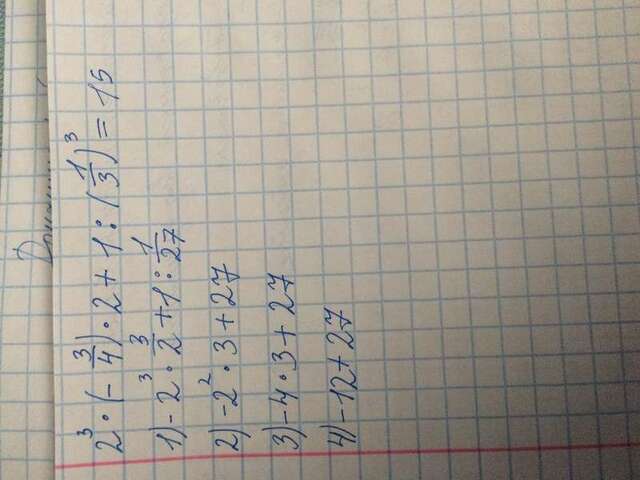 2³ · (- 3/4) · 2 + 1 : (1/3)³ = 15
1) - 2³ · 3/2 + 1 : 1/27
2) -2² · 3 + 27
3) - 4 · 3 + 27
4) - 12 + 27